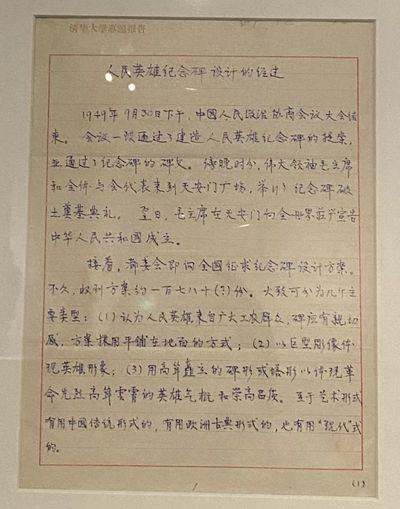 清华大学专题报告
人民英雄纪念碑设计的经过
1949年9月30日下午，中国人民政治协商会议大会结
束。会议一致通过了建造人民英雄纪念碑的提案，
并通过了纪念碑的碑文。傍晚时分，伟大领袖毛主席
和全体与会代表来到天安门广场，举行了纪念碑破
土奠基典礼。翌日，毛主席在天安门向全世界庄严宣告
中华人民共和国成立。
接着，都委会即向全国征求纪念碑设计方案。
不久，收到方案约一百七八十(?)份。大致可分为几个主
要类型：(1)认为人民英雄来自广大工农群众，碑应有亲切
感，方案采用平铺在地面的方式；(2)以巨型雕像体
现英雄形象；(3)用高耸矗立的碑形或塔形以体现革
命先烈高耸云霄的英雄气概和崇高品质。至于艺术形式
有用中国传统形式的，有用欧洲古典形式的，也有用"现代"式
的。
(1)